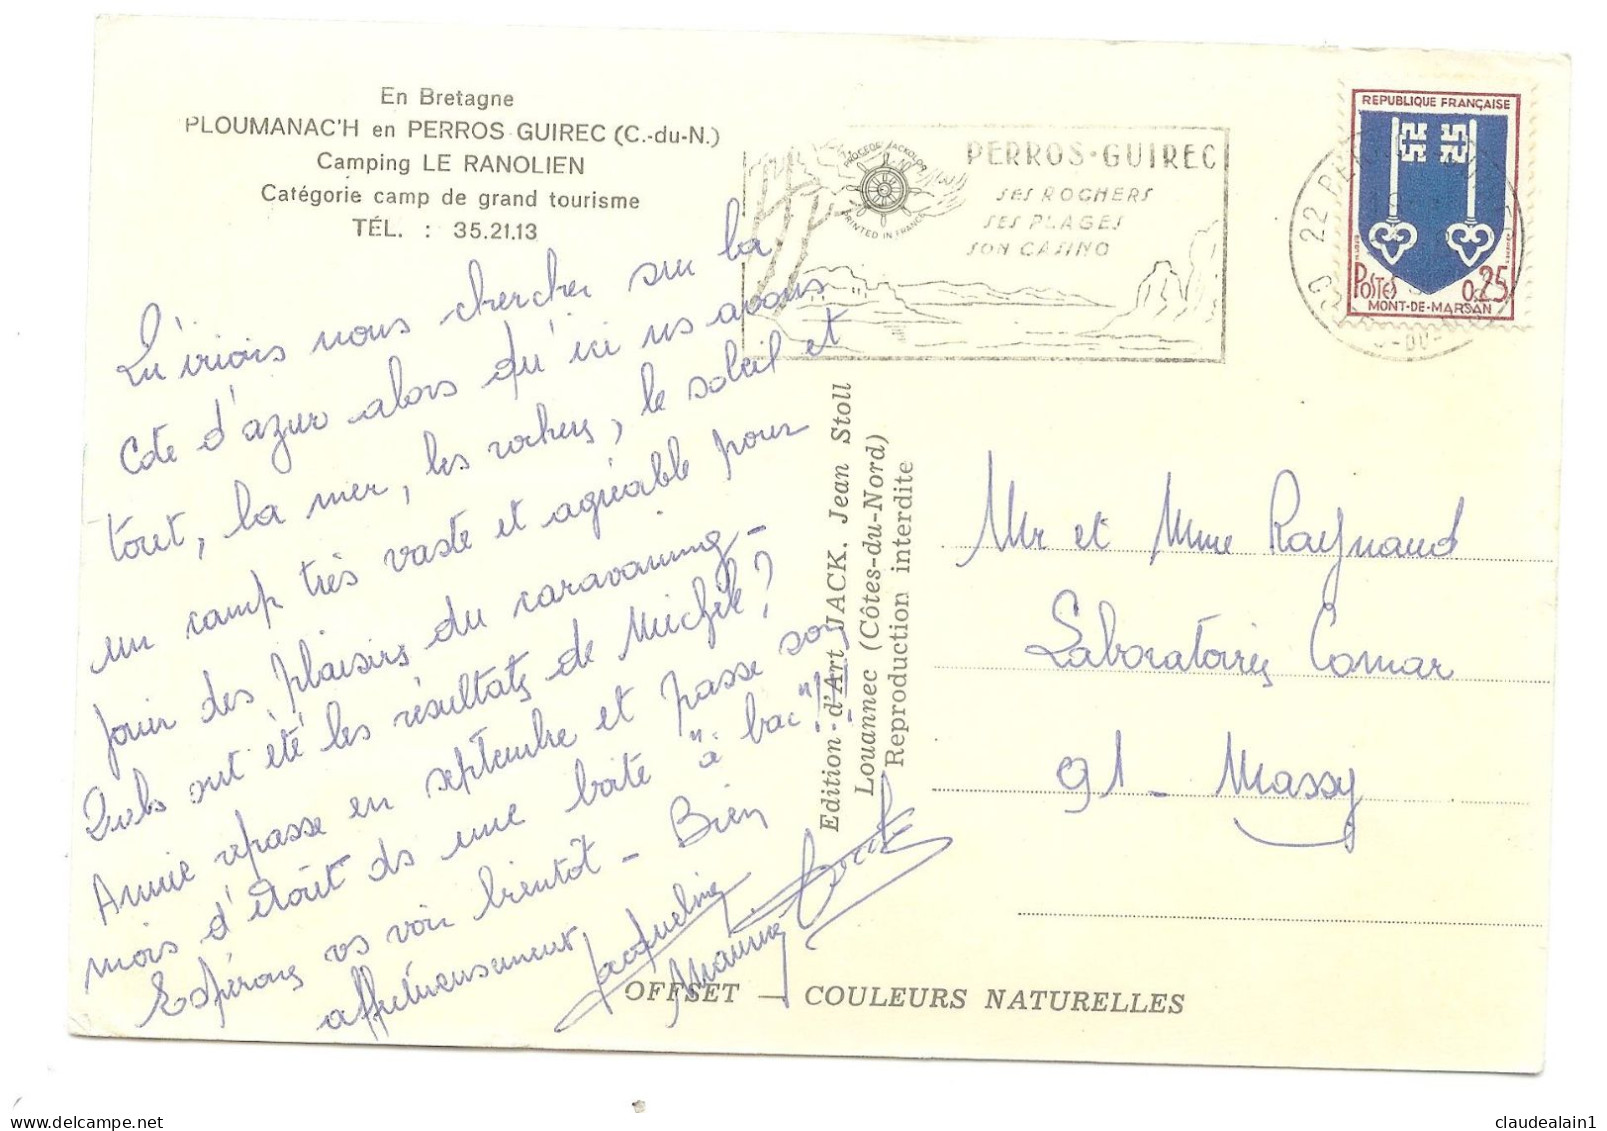 En Bretagne
PLOUMANAC'H en PERROS GUIREC (C.-du-N.)
Camping LE RANOLIEN
Catégorie camp de grand tourisme
TÉL. : 35.21.13
Qu'irions nous chercher sur la
Cote d'azur alors qu'ici ns avons
tout, la mer, les rochers, le soleil et
un camp très vaste et agréable pour
jouir des plaisirs du caravaning -
Quels ont été les résultats de Michèle?
Annie repasse en septembre et passe son
mois d'août ds une boîte "à bac"!
Espérons vs voir bientôt - Bien
affectueusement,
Jacqueline
Maurice
PROCÉDÉ JACKOLOR
PRINTED IN FRANCE
PERROS-GUIREC
SES ROCHERS
SES PLAGES
SON CASINO
22
REPUBLIQUE FRANÇAISE
POSTES 0,25
MONT-DE-MARSAN
Edition d'Art JACK. Jean Stoll
Louannec (Côtes-du-Nord)
Reproduction interdite
Mr et Mme Raynaud
Laboratoires Comar
91 - Massy
OFFSET — COULEURS NATURELLES
claudealain1